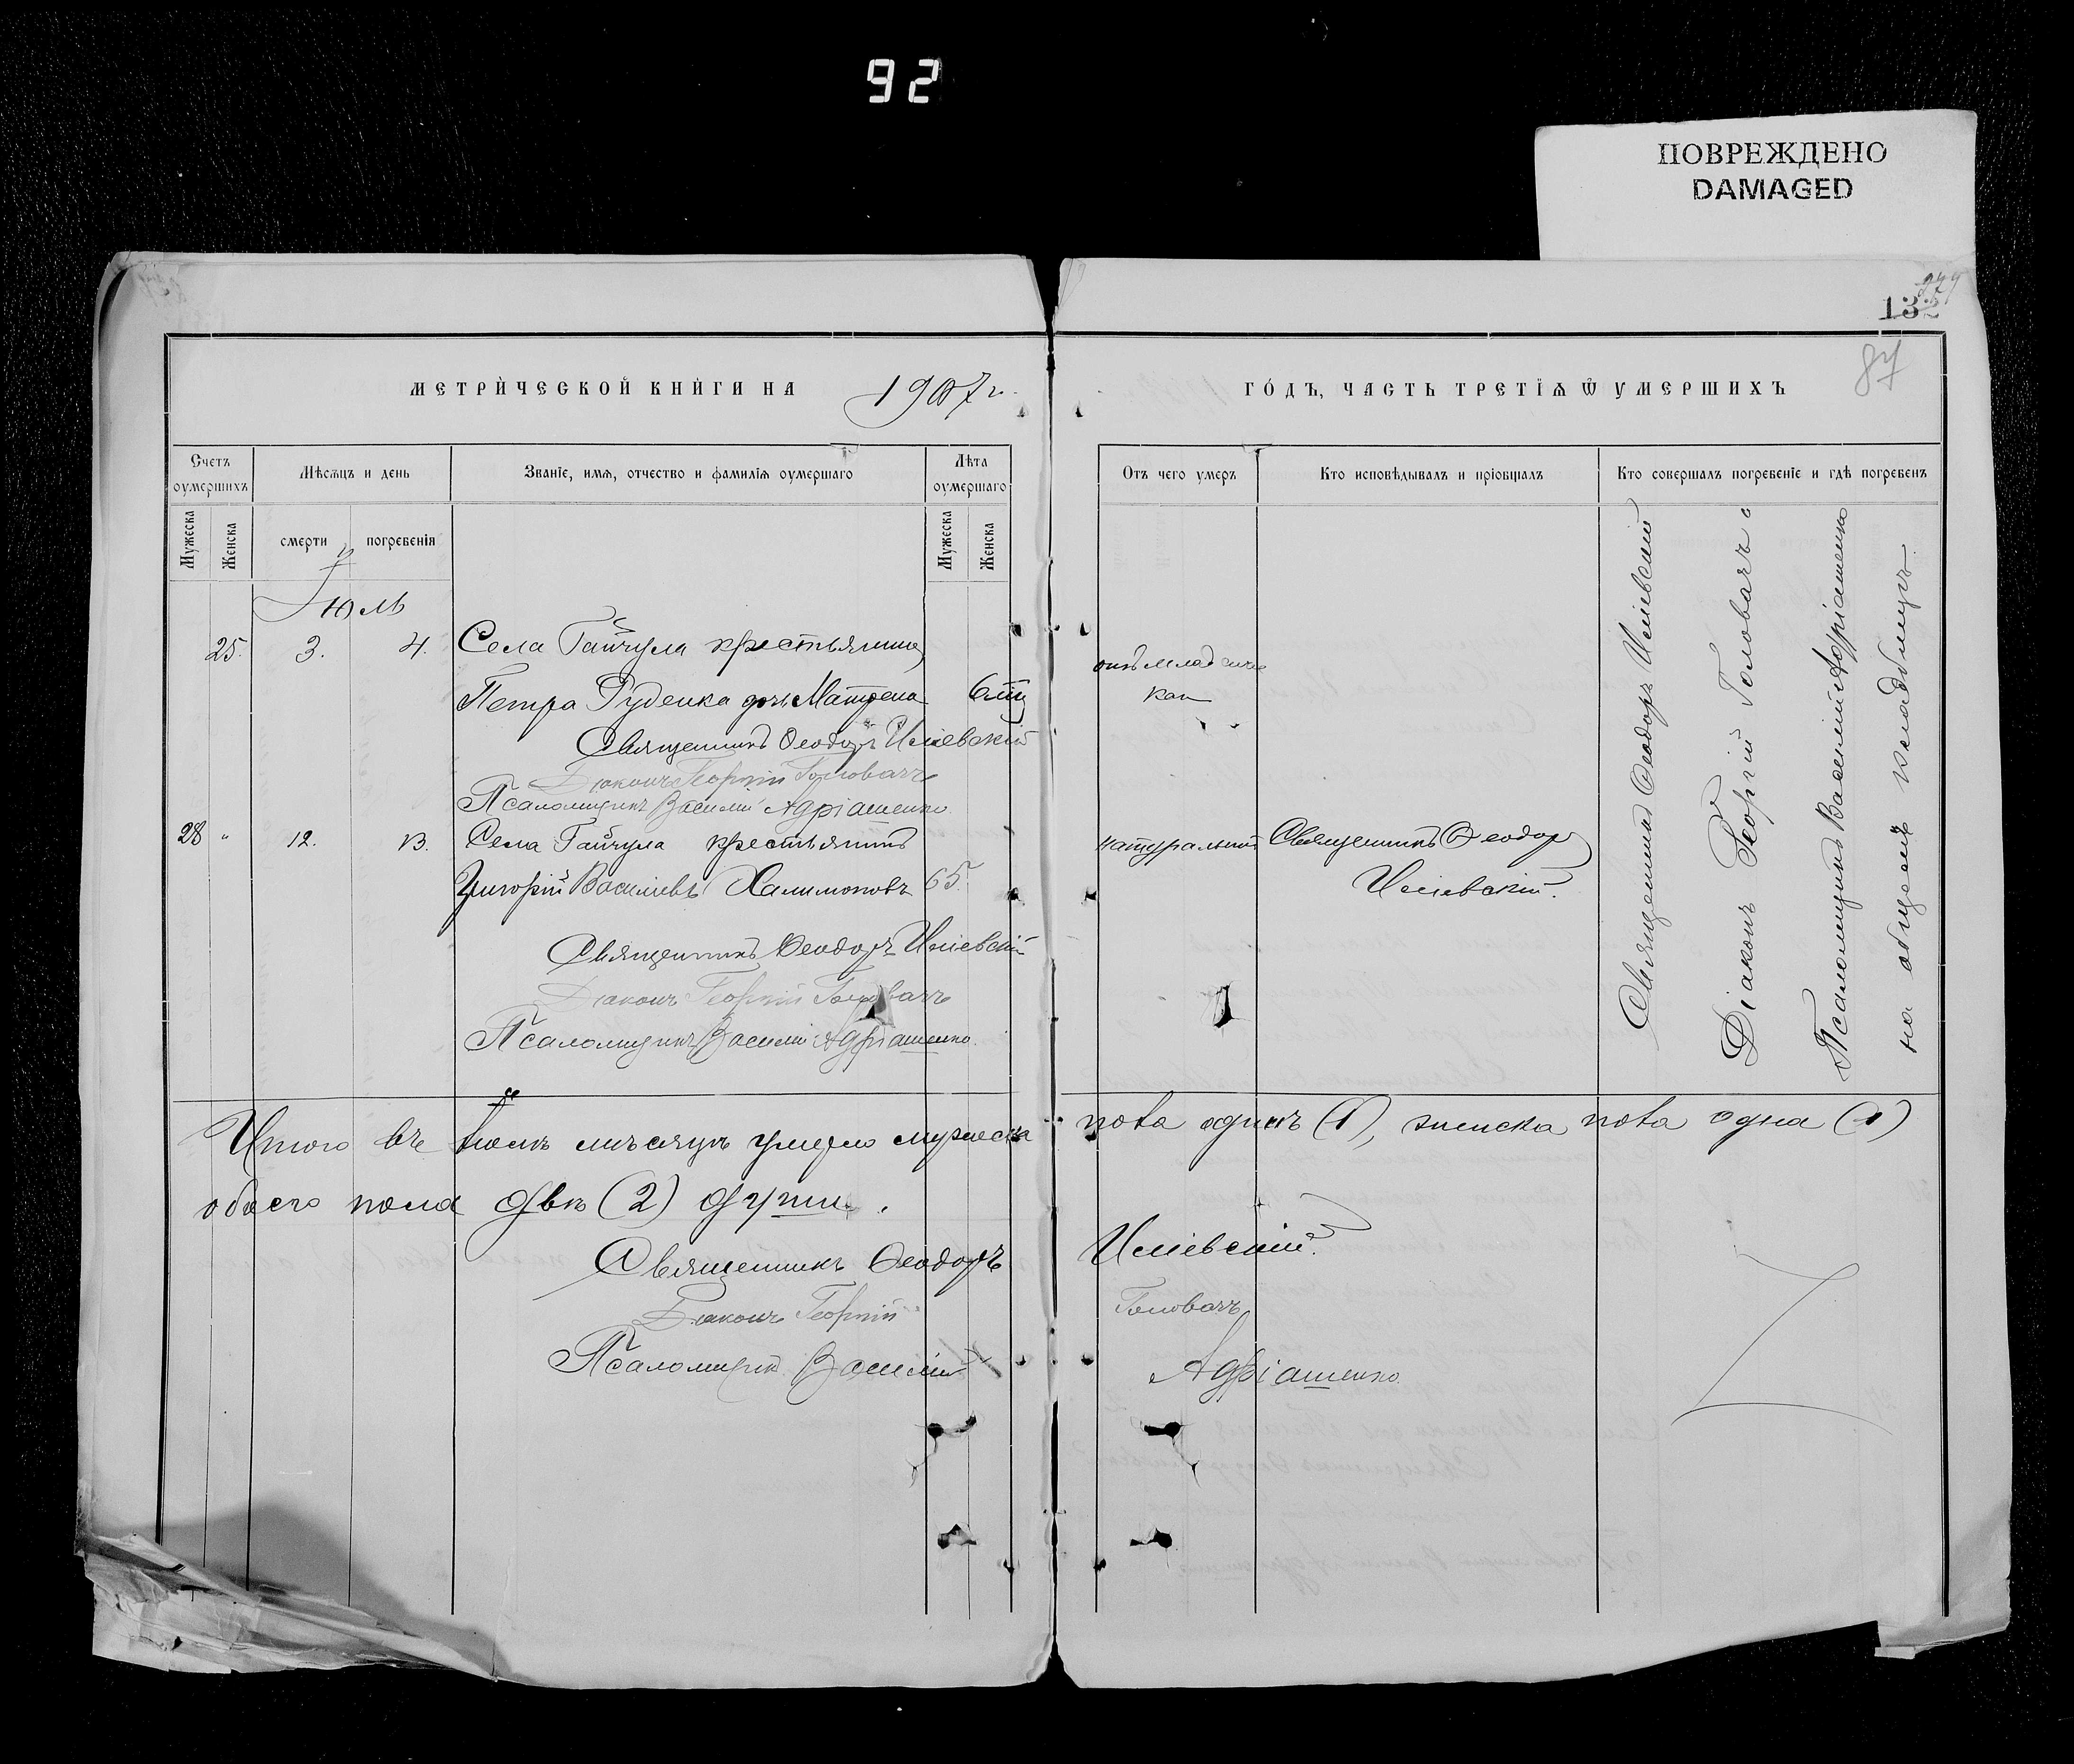 92
ПОВРЕЖДЕНО
DAMAGED
132
87
МЕТРИ́ЧЕСКОЙ КНИ́ГИ НА 1907 г.
Счетъ оумершихъ
Мѣсяцъ и день
Званіе, имя, отчество и фамилія оумершаго
Лѣта оумершаго
Мужеска
Женска
смерти
погребенія
Мужеска
Женска
Іюль
25. 3. 4. Села Гайчула крестьянина
Петра Руденка дочь Матрена 6 мц
Священникъ Ѳеодоръ
Діаконъ Георгій Головачъ
Псаломщикъ Василій Адріашенко
28 " 12. 13. Села Гайчула крестьянинъ
Григорій Васильевъ Халимоновъ 65.
Священникъ Ѳеодоръ
Діаконъ Георгій Головачъ
Псаломщикъ Василій Адріашенко.
Итого въ Іюлѣ мѣсяцѣ умерло мужеска
обоего пола двѣ (2) души.
Священникъ Ѳеодоръ
Діаконъ Георгій
Псаломщик Василій
ГО́ДЪ, ЧАСТЬ ТРЕТІЯ Ѿ УМЕРШИХЪ
Отъ чего умеръ
Кто исповѣдывалъ и пріобщалъ
Кто совершалъ погребеніе и гдѣ погребенъ
отъ младенче
кой
натуральной Священникъ Ѳеодор
Священникъ Ѳеодоръ
Діаконъ Георгій Головачъ и
Псаломщикъ Василій Адріашенко
на общемъ кладбищѣ.
пола одинъ (1), женска пола одна (1)
Головачъ
Адріашенко.